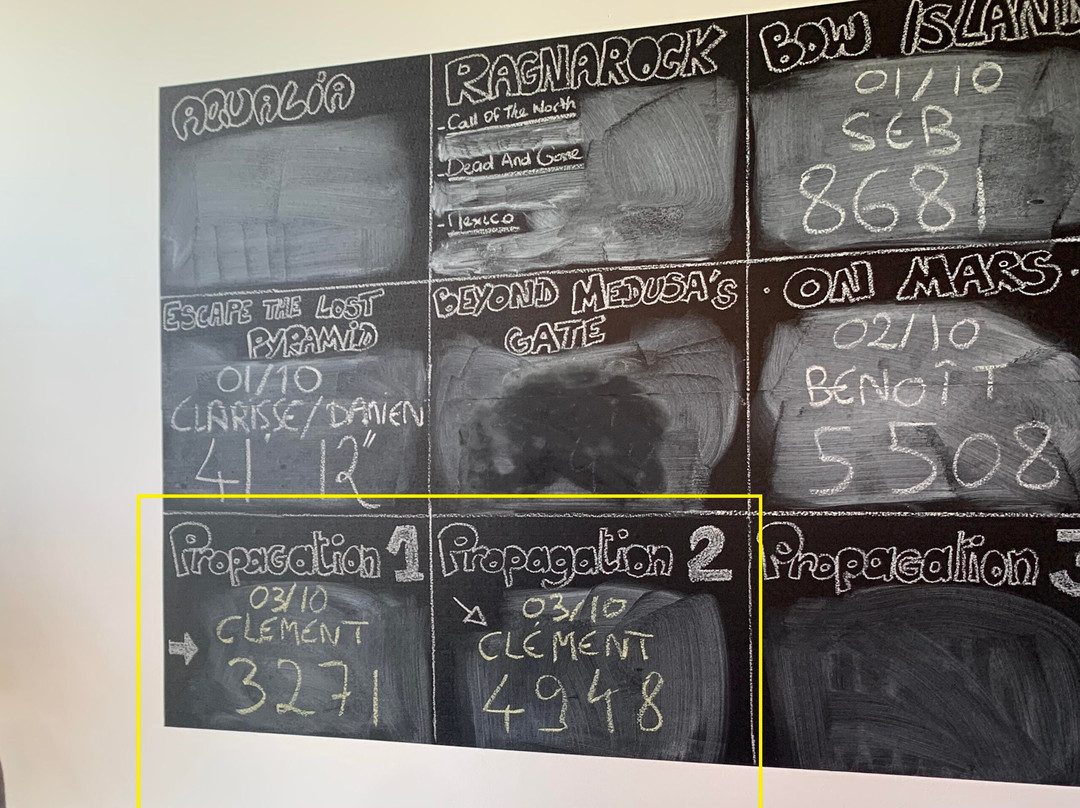 AQUALiA
RAGNAROCK
- Call Of The North
- Dead And Gone
- Mexico
BOW ISLAND
01/10
SEB
8681
ESCAPE THE LOST
PYRAMiD
01/10
CLARISSE/DAMIEN
41 12"
BEYOND MEDUSA'S
GATE
· ON MARS ·
02/10
BENOÎT
5 508
Propagation 1
03/10
CLEMENT
3271
Propagation 2
03/10
CLÉMENT
4948
Propagation 3